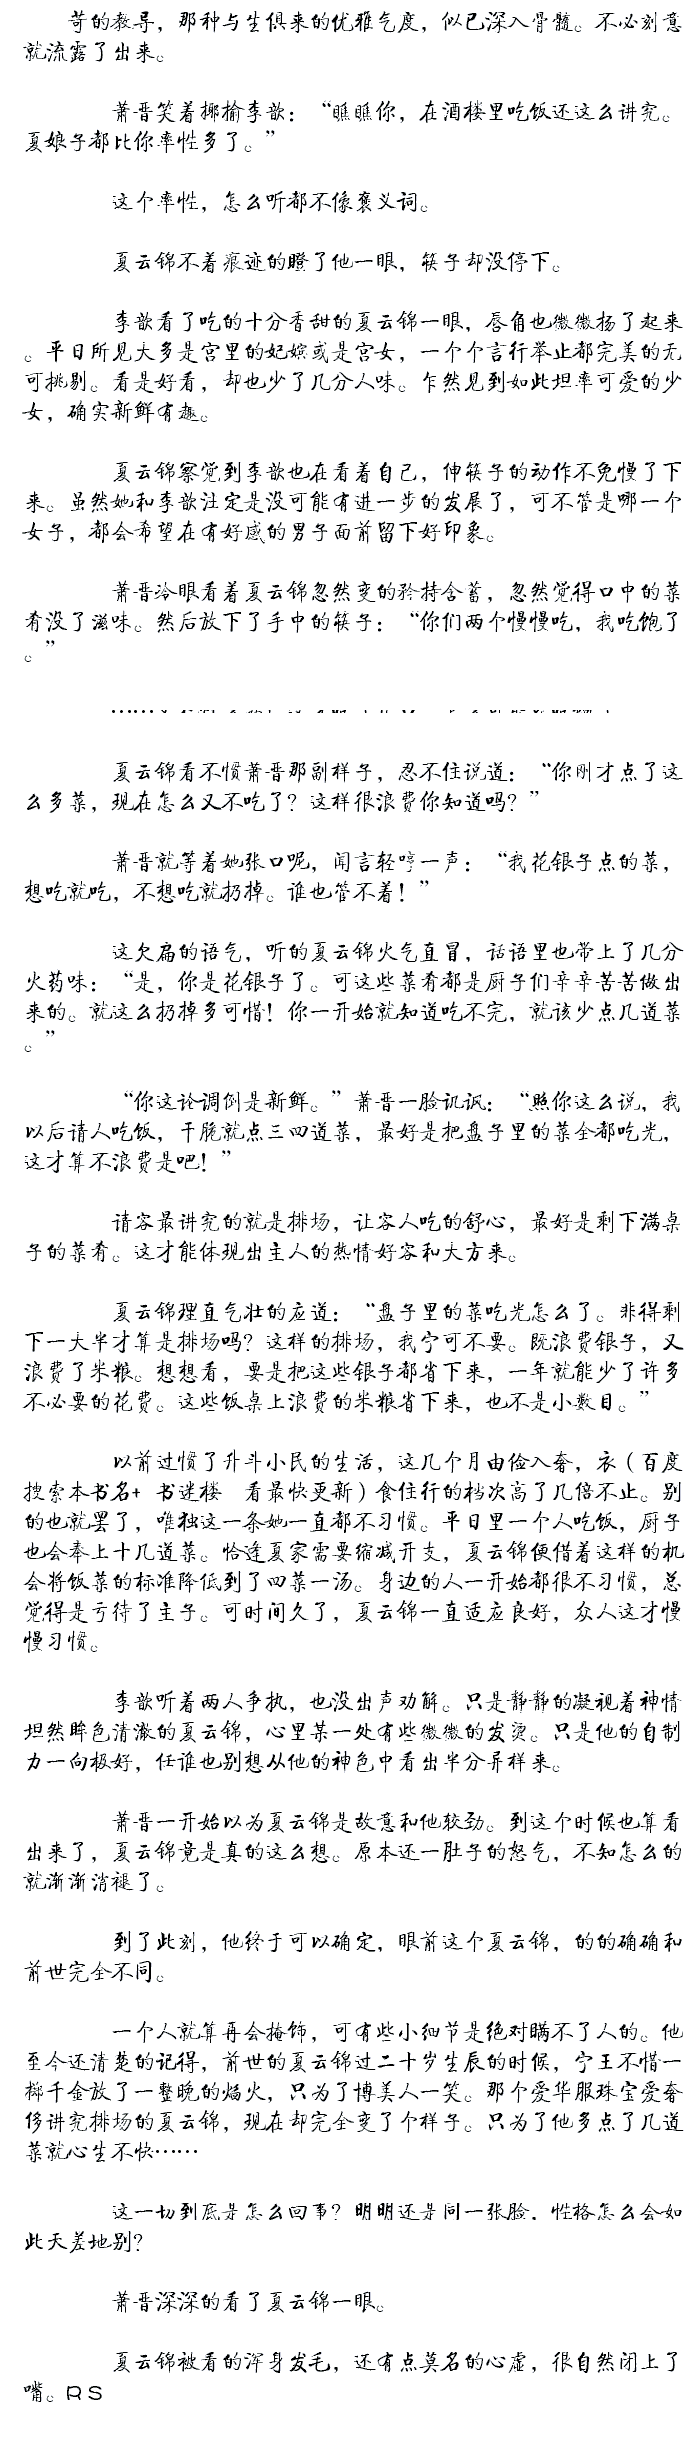 苛的教导，那种与生俱来的优雅气度，似已深入骨髓。不必刻意
就流露了出来。
萧晋笑着揶揄李歆：“瞧瞧你，在酒楼里吃饭还这么讲究。
夏娘子都比你率性多了。”
这个率性，怎么听都不像褒义词。
夏云锦不着痕迹的瞪了他一眼，筷子却没停下。
李歆看了吃的十分香甜的夏云锦一眼，唇角也微微扬了起来
。平日所见大多是宫里的妃嫔或是宫女，一个个言行举止都完美的无
可挑剔。看是好看，却也少了几分人味。乍然见到如此坦率可爱的少
女，确实新鲜有趣。
夏云锦察觉到李歆也在看着自己，伸筷子的动作不免慢了下
来。虽然她和李歆注定是没可能有进一步的发展了，可不管是哪一个
女子，都会希望在有好感的男子面前留下好印象。
萧晋冷眼看着夏云锦忽然变的矜持含蓄，忽然觉得口中的菜
肴没了滋味。然后放下了手中的筷子：“你们两个慢慢吃，我吃饱了
。”
夏云锦看不惯萧晋那副样子，忍不住说道：“你刚才点了这
么多菜，现在怎么又不吃了？这样很浪费你知道吗？”
萧晋就等着她张口呢，闻言轻哼一声：“我花银子点的菜，
想吃就吃，不想吃就扔掉。谁也管不着！”
这欠扁的语气，听的夏云锦火气直冒，话语里也带上了几分
火药味：“是，你是花银子了。可这些菜肴都是厨子们辛辛苦苦做出
来的。就这么扔掉多可惜！你一开始就知道吃不完，就该少点几道菜
。”
“你这论调倒是新鲜。”萧晋一脸讥讽：“照你这么说，我
以后请人吃饭，干脆就点三四道菜，最好是把盘子里的菜全都吃光，
这才算不浪费是吧！”
请客最讲究的就是排场，让客人吃的舒心，最好是剩下满桌
子的菜肴。这才能体现出主人的热情好客和大方来。
夏云锦理直气壮的应道：“盘子里的菜吃光怎么了。非得剩
下一大半才算是排场吗？这样的排场，我宁可不要。既浪费银子，又
浪费了米粮。想想看，要是把这些银子都省下来，一年就能少了许多
不必要的花费。这些饭桌上浪费的米粮省下来，也不是小数目。”
以前过惯了升斗小民的生活，这几个月由俭入奢，衣（百度
搜索本书名+ 书迷楼 看最快更新）食住行的档次高了几倍不止。别
的也就罢了，唯独这一条她一直都不习惯。平日里一个人吃饭，厨子
也会奉上十几道菜。恰逢夏家需要缩减开支，夏云锦便借着这样的机
会将饭菜的标准降低到了四菜一汤。身边的人一开始都很不习惯，总
觉得是亏待了主子。可时间久了，夏云锦一直适应良好，众人这才慢
慢习惯。
李歆听着两人争执，也没出声劝解。只是静静的凝视着神情
坦然眸色清澈的夏云锦，心里某一处有些微微的发烫。只是他的自制
力一向极好，任谁也别想从他的神色中看出半分异样来。
萧晋一开始以为夏云锦是故意和他较劲。到这个时候也算看
出来了，夏云锦竟是真的这么想。原本还一肚子的怒气，不知怎么的
就渐渐消褪了。
到了此刻，他终于可以确定，眼前这个夏云锦，的的确确和
前世完全不同。
一个人就算再会掩饰，可有些小细节是绝对瞒不了人的。他
至今还清楚的记得，前世的夏云锦过二十岁生辰的时候，宁王不惜一
掷千金放了一整晚的焰火，只为了博美人一笑。那个爱华服珠宝爱奢
侈讲究排场的夏云锦，现在却完全变了个样子。只为了他多点了几道
菜就心生不快……
这一切到底是怎么回事？明明还是同一张脸，性格怎么会如
此天差地别？
萧晋深深的看了夏云锦一眼。
夏云锦被看的浑身发毛，还有点莫名的心虚，很自然闭上了
嘴。RS